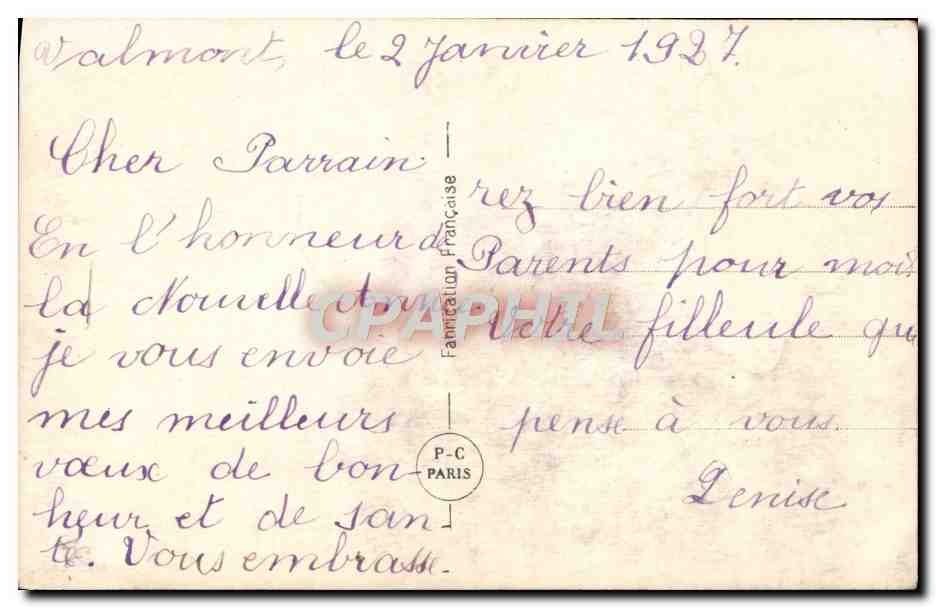 Valmont, le 2 Janvier 1927.
Cher Parrain
En l'honneur de
la Nouvelle Ann
je vous envoie
mes meilleurs
vœux de bon-
heur et de san-
té. Vous embrasse-
rez bien fort vos
Parents pour moi.
Votre filleule qui
pense à vous.
Denise
Fabrication Française
P-C
PARIS
CPAPHIL